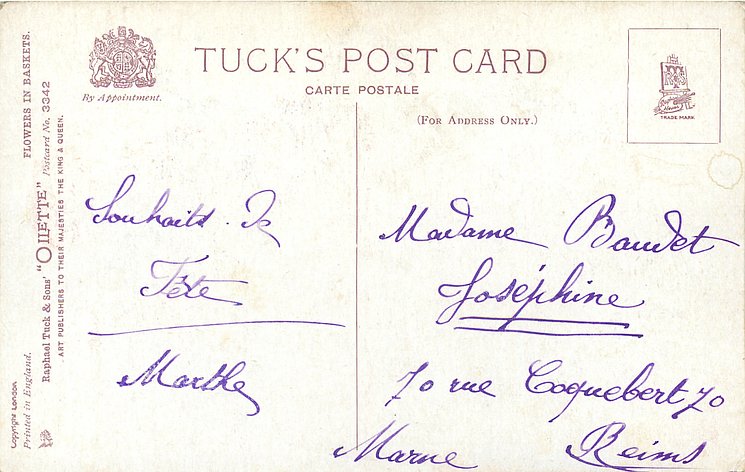 TUCK'S POST CARD
CARTE POSTALE
(FOR ADDRESS ONLY.)
By Appointment.
TRADE MARK
FLOWERS IN BASKETS.
Raphael Tuck & Sons' "OILETTE" Postcard No. 3342
ART PUBLISHERS TO THEIR MAJESTIES THE KING & QUEEN.
Copyright London
Printed in England.
Souhaits de
Fête
Marthe
Madame Baudet
Joséphine
70 rue Coquebert 70
Marne Reims